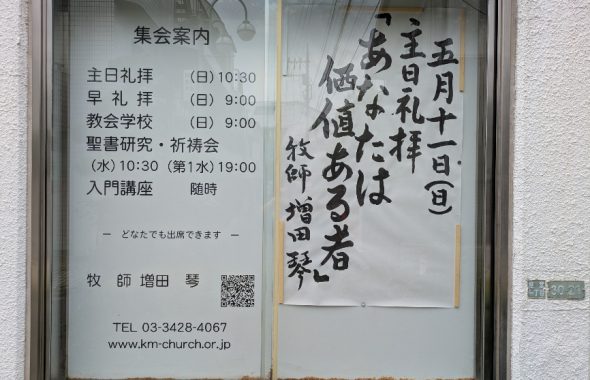 集会案内
主日礼拝 (日)10:30
早礼拝 (日) 9:00
教会学校 (日) 9:00
聖書研究・祈祷会
(水)10:30 (第1水)19:00
入門講座 随時
ー どなたでも出席できます ー
牧 師 増田 琴
TEL 03-3428-4067
www.km-church.or.jp
五月十一日(日)
主日礼拝
「あなたは
価値ある者」
牧師 増田琴